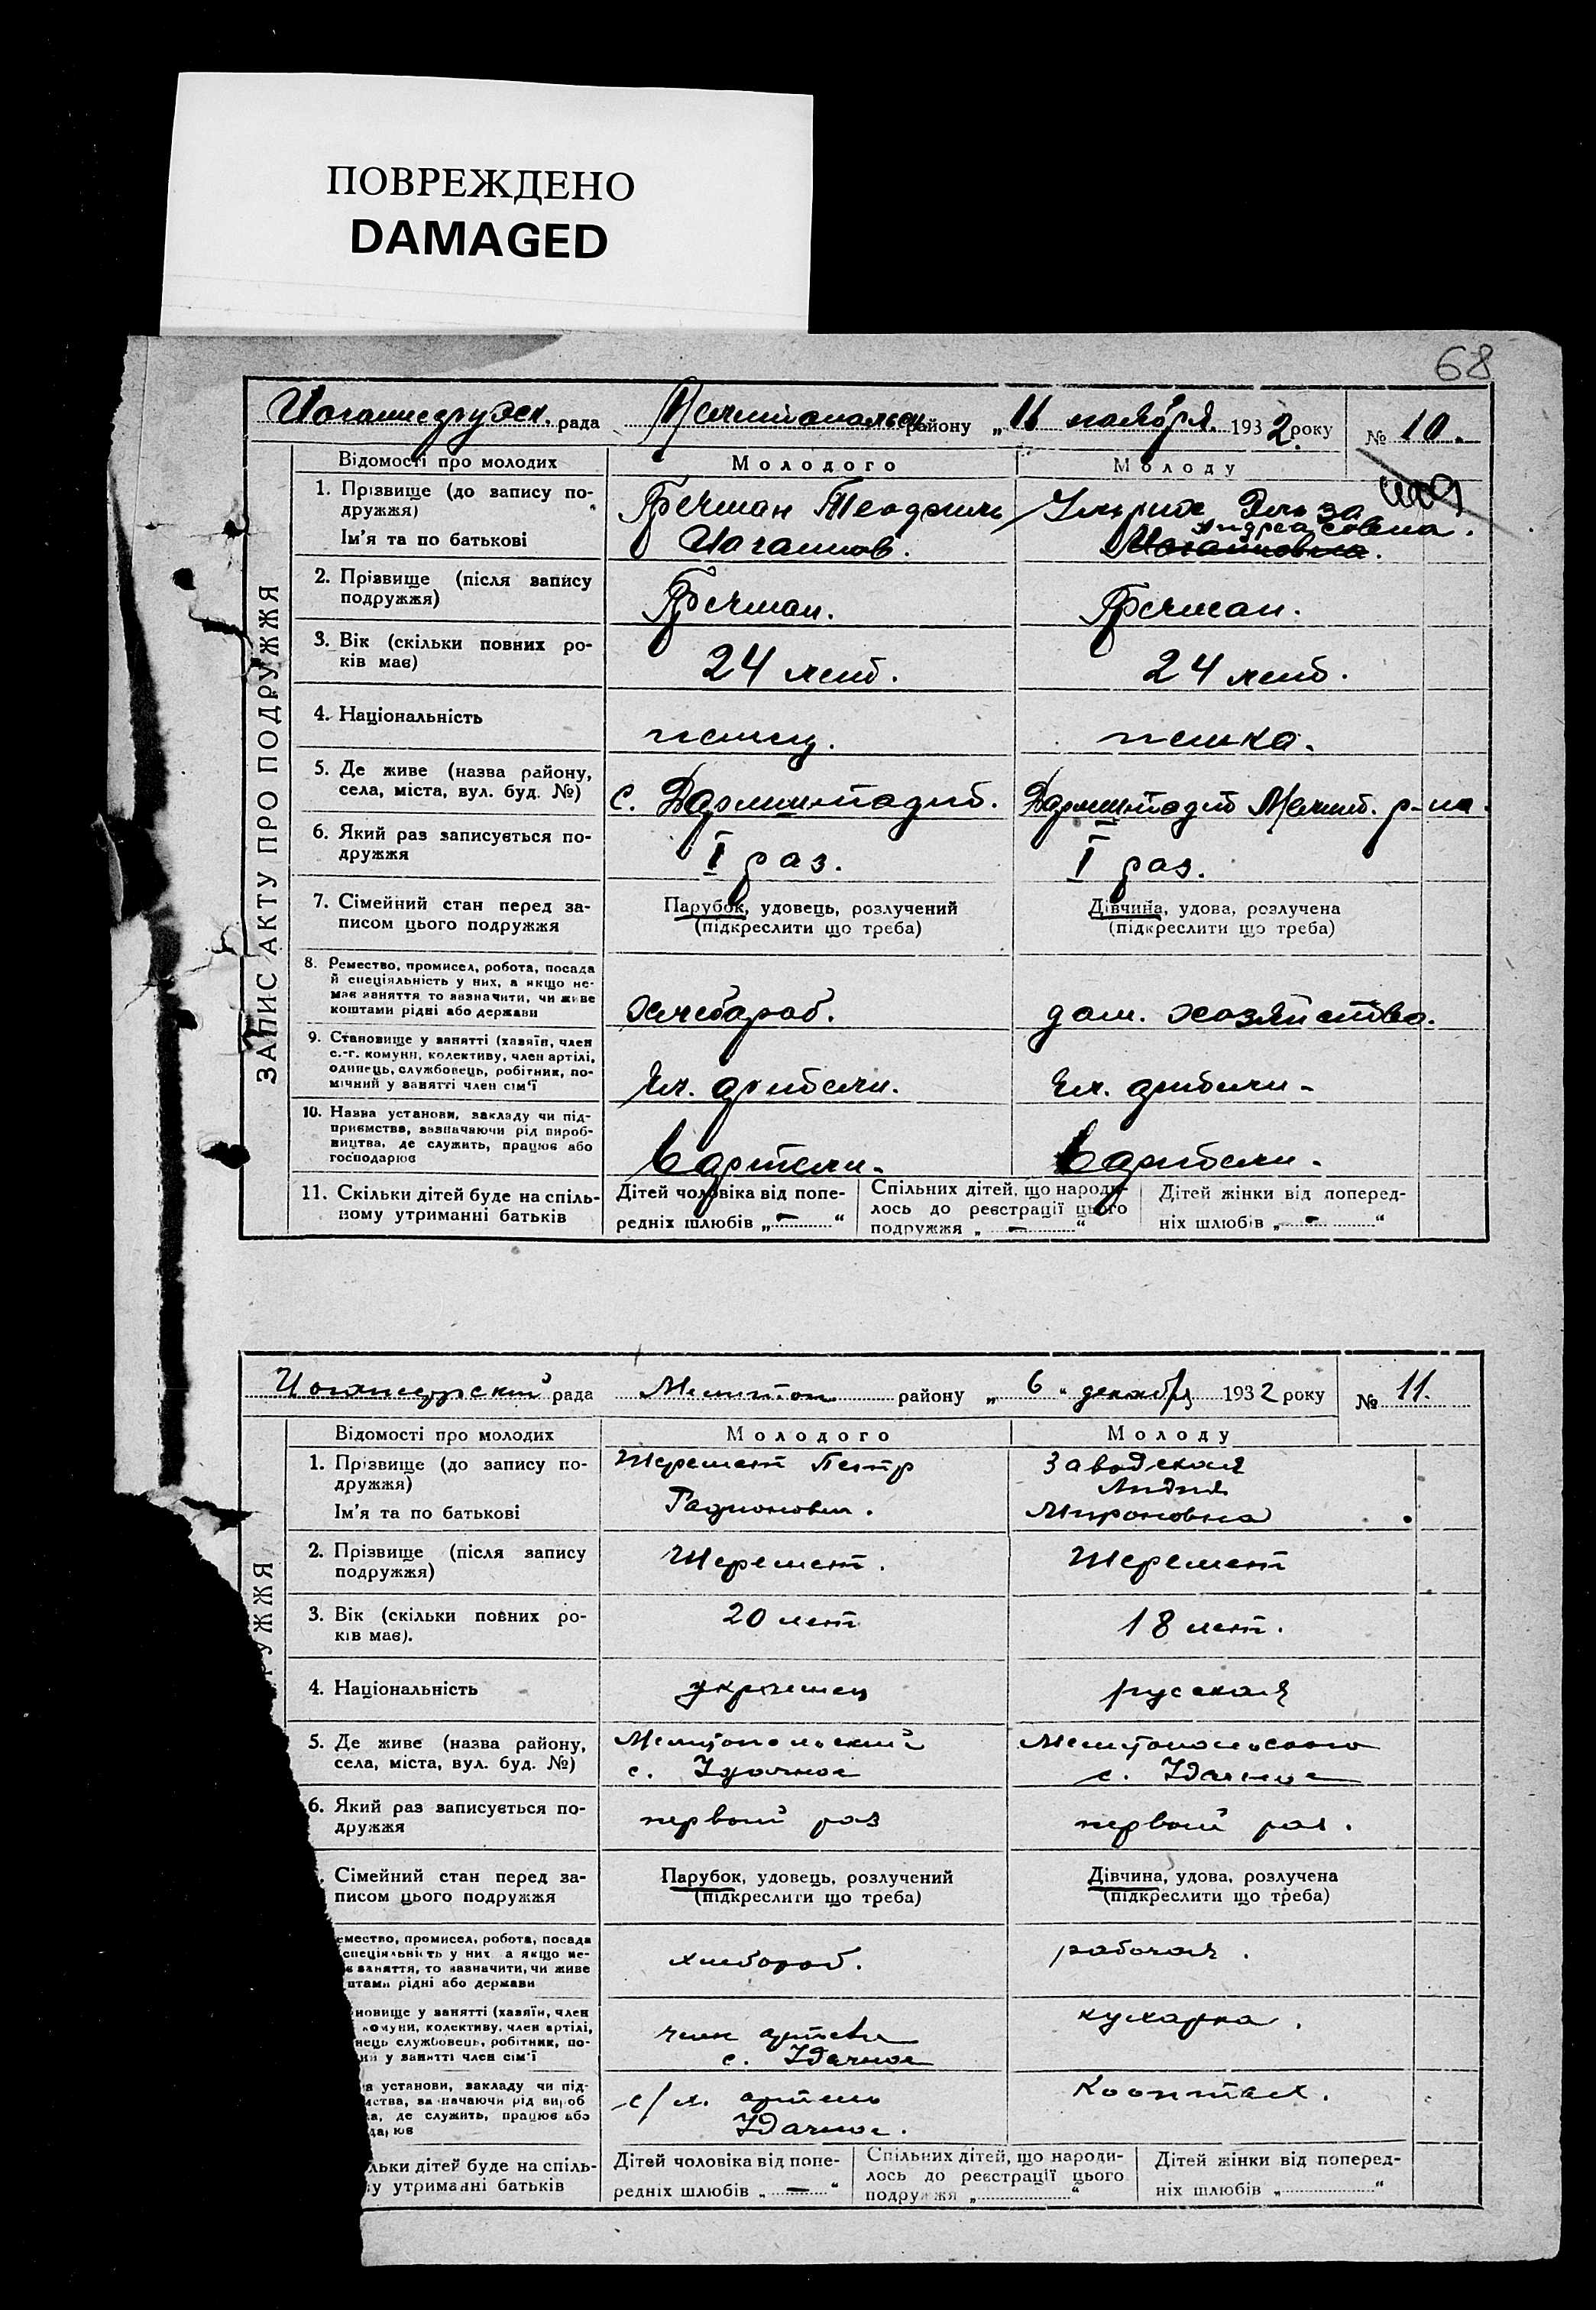 ПОВРЕЖДЕНО
DAMAGED
68
рада района „11 ноября 1932 року № 10.
Відомості про молодих Молодого Молоду
ЗАПИС АКТУ ПРО ПОДРУЖЖЯ
1. Прізвище (до запису по-
дружжя)
Ім'я та по батькові
Эльза
Андреасовна.
2. Прізвище (після запису
подружжя)
3. Вік (скільки повних ро-
ків має)
24 лет. 24 лет.
4. Національність
немец. немка.
5. Де живе (назва району,
села, міста, вул. буд. №)
с. Дармштадт. Дармштадт Мелит. р-на.
6. Який раз записується по-
дружжя
I раз. I раз.
7. Сімейний стан перед за-
писом цього подружжя
Парубок, удовець, розлучений
(підкреслити що треба)
Дівчина, удова, розлучена
(підкреслити що треба)
8. Ремество, промисел, робота, посада
й спеціяльність у них, а якщо не-
має заняття то зазначити, чи живе
коштами рідні або держави
хлебороб. дом. хозяйство.
9. Становище у занятті (хазяїн, член
с.-г. комуни, колективу, член артілі,
одинець, службовець, робітник, по-
мічний у занятті член сім'ї
Чл. артели. Чл. артели.
10. Назва установи, закладу чи під-
приємства, зазначаючи рід вироб-
ництва, де служить, працює або
господарює
В артели. В артели.
11. Скільки дітей буде на спіль-
ному утриманні батьків
Дітей чоловіка від попе-
редніх шлюбів „ — “
Спільних дітей, що народи-
лось до реєстрації цього
подружжя „ — “
Дітей жінки від поперед-
ніх шлюбів „ — “
рада Мелитоп району „ 6 „ декабря 1932 року № 11.
Відомості про молодих Молодого Молоду
РУЖЖЯ
1. Прізвище (до запису по-
дружжя)
Ім'я та по батькові
Шеремет Петр
Заводская
Лидия
Мироновна
2. Прізвище (після запису
подружжя)
Шеремет. Шеремет
3. Вік (скільки повних ро-
ків має).
20 лет 18 лет.
4. Національність
украинец русская
5. Де живе (назва району,
села, міста, вул. буд. №)
Мелитопольский
с. Удачное
Мелитопольского
с. Удачное
6. Який раз записується по-
дружжя
первый раз первый раз.
Сімейний стан перед за-
писом цього подружжя
Парубок, удовець, розлучений
(підкреслити що треба)
Дівчина, удова, розлучена
(підкреслити що треба)
емество, промисел, робота, посада
спеціяльність у них а якщо не-
є заняття, то зазначити, чи живе
штами рідні або держави
хлебороб. рабочая.
новище у занятті (хазяїн, член
комуни, колективу, член артілі,
нець службовець, робітник, по-
ий у занятті член сім'ї
член артели
с. Удачное
кухарка.
а установи, закладу чи під-
мства, зазначаючи рід вироб
ва, де служить, працює або
дарює
с/х. артель
Удачное.
льки дітей буде на спіль-
у утриманні батьків
Дітей чоловіка від попе-
редніх шлюбів „ — “
Спільних дітей, що народи-
лось до реєстрації цього
подружжя „ “
Дітей жінки від поперед-
ніх шлюбів „ “